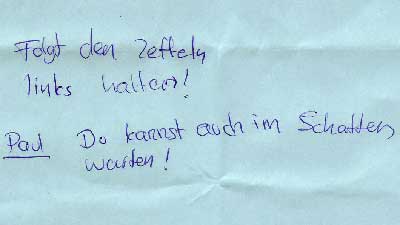 Folgt den Zetteln
links halten!
Paul Du kannst auch im Schatten
warten!